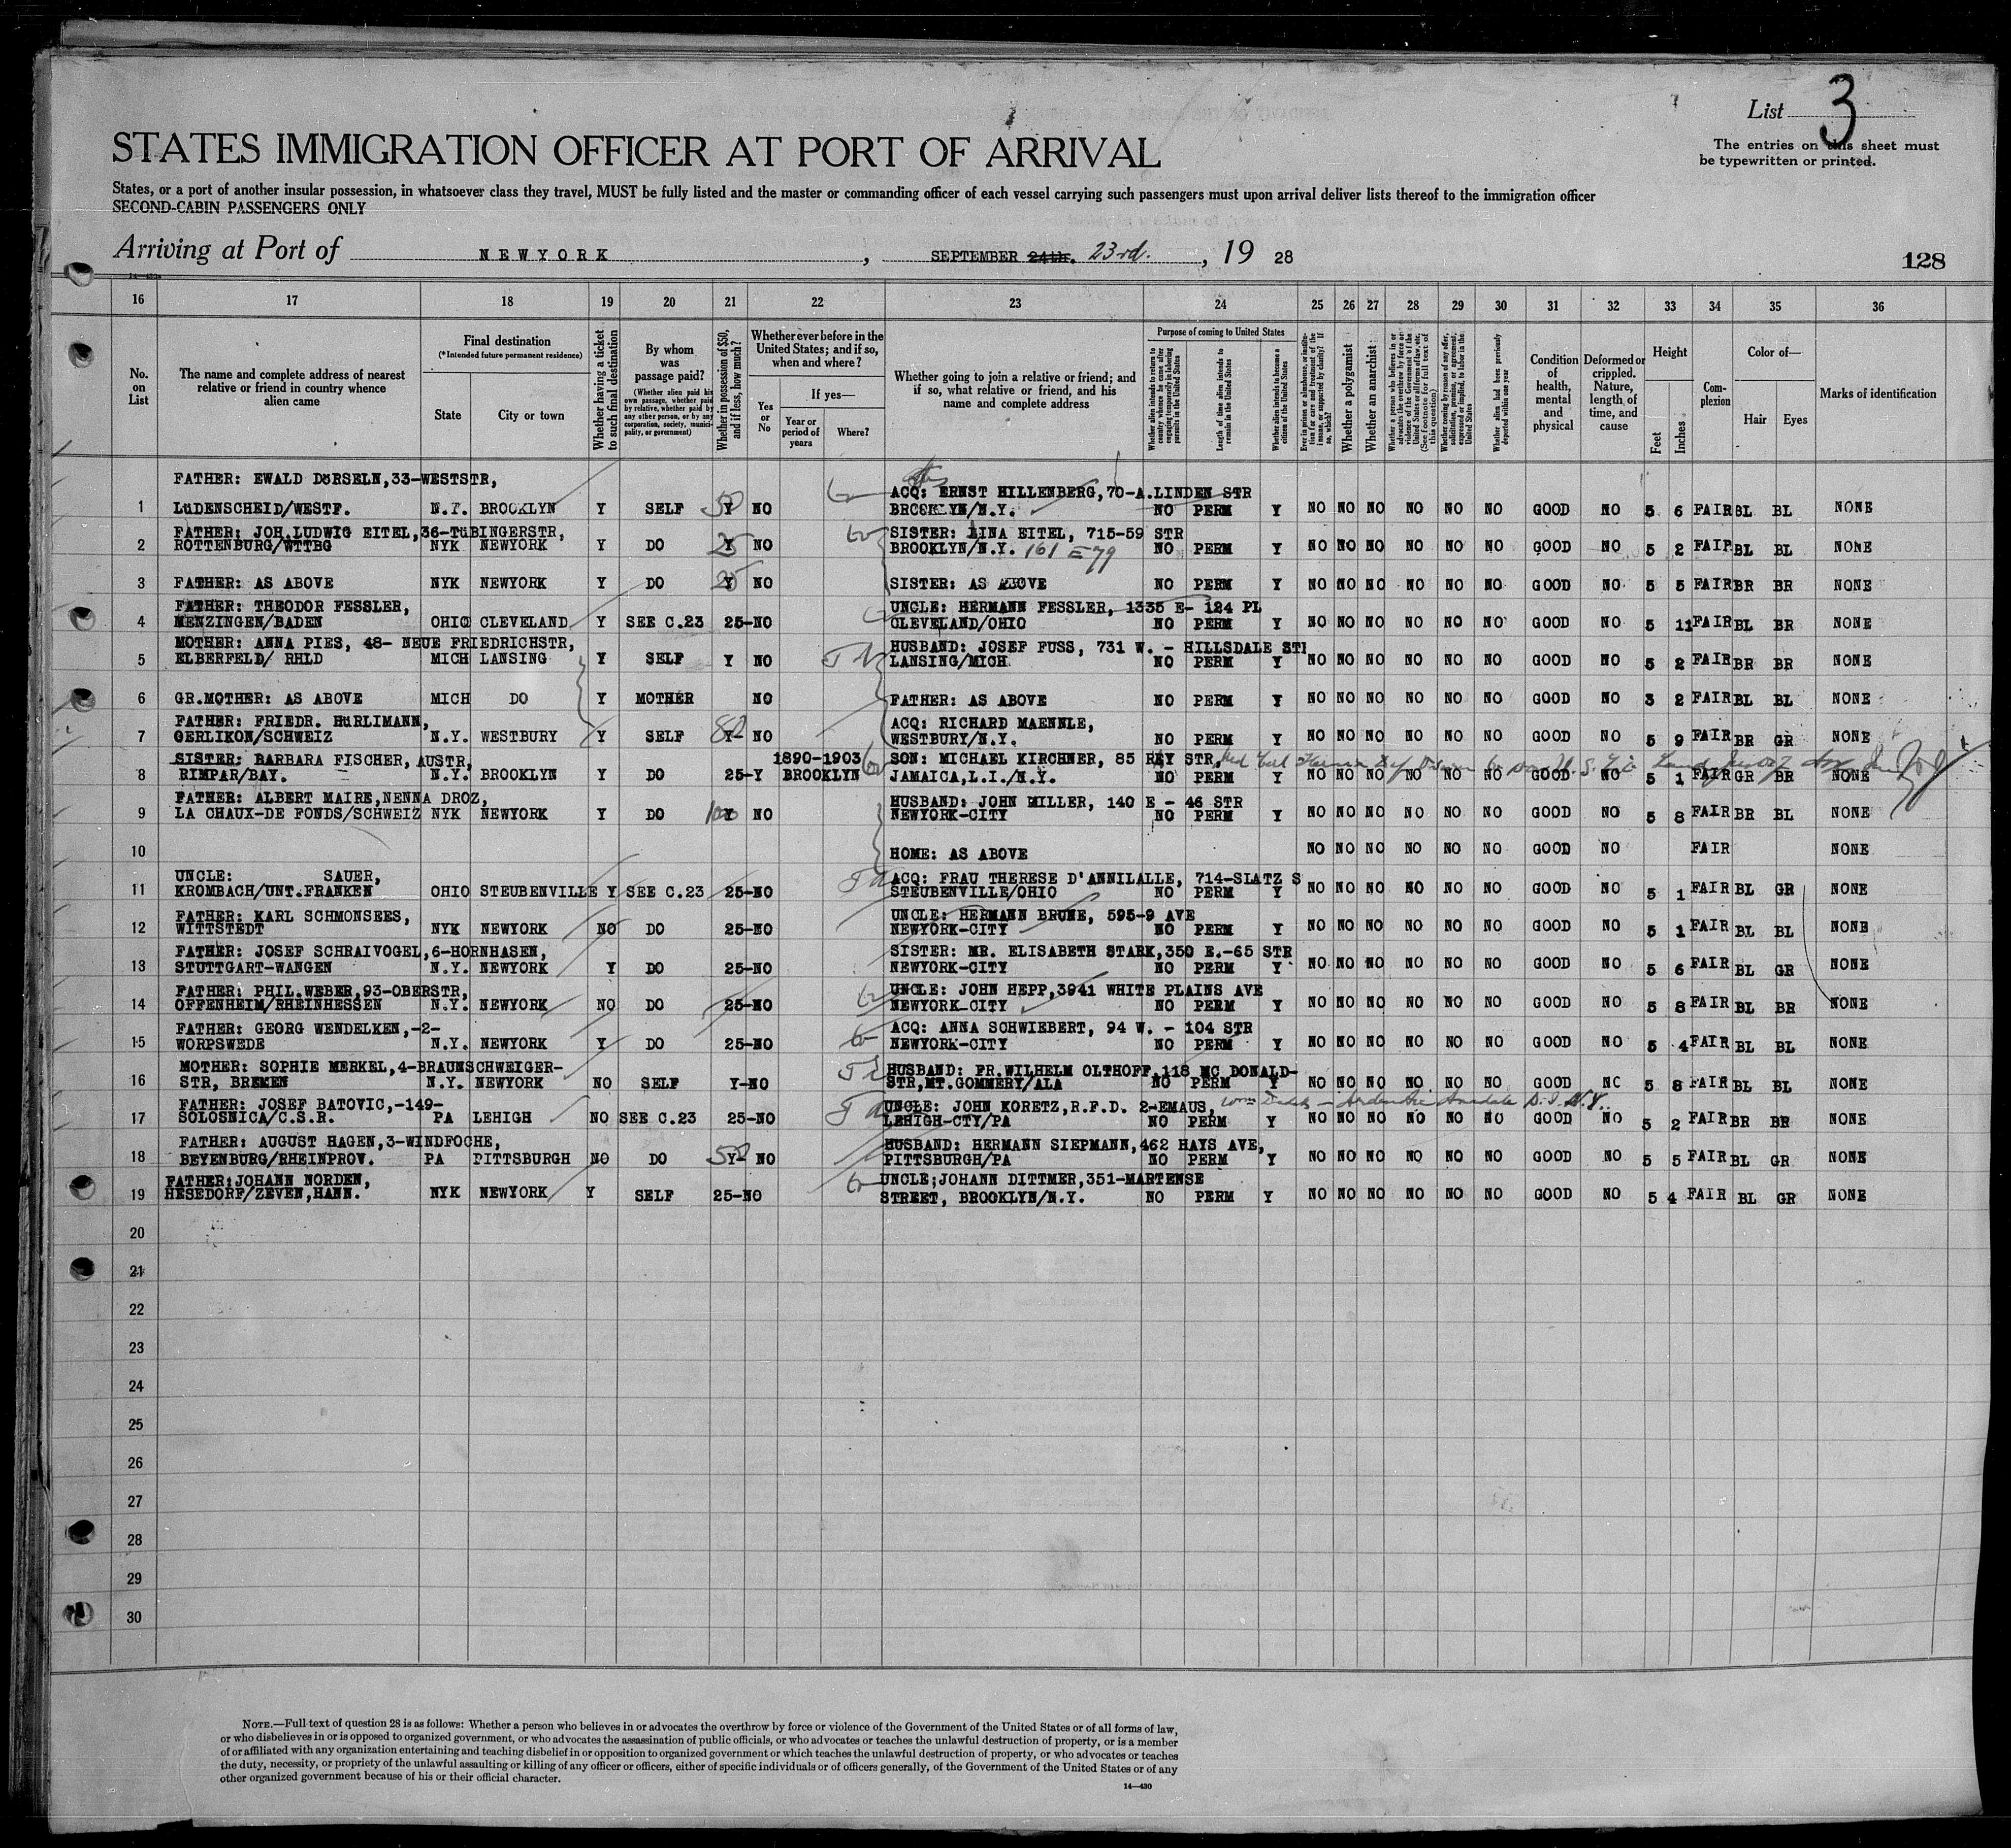 List 3
The entries on this sheet must
be typewritten or printed.
STATES IMMIGRATION OFFICER AT PORT OF ARRIVAL
States, or a port of another insular possession, in whatsoever class they travel, MUST be fully listed and the master or commanding officer of each vessel carrying such passengers must upon arrival deliver lists thereof to the immigration officer
SECOND-CABIN PASSENGERS ONLY
Arriving at Port of NEWYORK, SEPTEMBER 24th. 23rd., 1928
128
16 17 18 19 20 21 22 23 24 25 26 27 28 29 30 31 32 33 34 35 36
No. on List
The name and complete address of nearest relative or friend in country whence alien came
Final destination
(*Intended future permanent residence)
State
City or town
Whether having a ticket to such final destination
By whom was passage paid?
(Whether alien paid his own passage, whether paid by relative, whether paid by any other person, or by any corporation, society, municipality, or government)
Whether in possession of $50, and if less, how much?
Whether ever before in the United States; and if so, when and where?
Yes or No
If yes—
Year or period of years
Where?
Whether going to join a relative or friend; and if so, what relative or friend, and his name and complete address
Purpose of coming to United States
Whether alien intends to return to country whence he came after engaging temporarily in laboring pursuits in the United States
Length of time alien intends to remain in the United States
Whether alien intends to become a citizen of the United States
Ever in prison or almshouse, or institution for care and treatment of the insane, or supported by charity? If so, which?
Whether a polygamist
Whether an anarchist
(See footnote for full text of this question)
Whether coming by reason of any offer, solicitation, promise, or agreement, expressed or implied, to labor in the United States
Whether alien had been previously deported within one year
Condition of health, mental and physical
Deformed or crippled. Nature, length of time, and cause
Height
Feet
Inches
Complexion
Color of—
Hair
Eyes
Marks of identification
FATHER: EWALD DöRSELN,33-WESTSTR, ACQ: ERNST HILLENBERG,70-A.LINDEN STR
1 LüDENSCHEID/WESTF. N.Y. BROOKLYN Y SELF 50 Y NO BROOKLYN/N.Y. NO PERM Y NO NO NO NO NO NO GOOD NO 5 6 FAIR BL BL NONE
FATHER: JOH.LUDWIG EITEL,36-TüBINGERSTR, SISTER: LINA EITEL, 715-59 STR
2 ROTTENBURG/WTTBG NYK NEWYORK Y DO 25 Y NO BROOKLYN/N.Y. 161 E 79 NO PERM Y NO NO NO NO NO NO GOOD NO 5 2 FAIR BL BL NONE
3 FATHER: AS ABOVE NYK NEWYORK Y DO 25 Y NO SISTER: AS ABOVE NO PERM Y NO NO NO NO NO NO GOOD NO 5 5 FAIR BR BR NONE
FATHER: THEODOR FESSLER, UNCLE: HERMANN FESSLER, 1335 E- 124 PL
4 MENZINGEN/BADEN OHIO CLEVELAND Y SEE C.23 25-NO CLEVELAND/OHIO NO PERM Y NO NO NO NO NO NO GOOD NO 5 11 FAIR BL BR NONE
MOTHER: ANNA PIES, 48- NEUE FRIEDRICHSTR, HUSBAND: JOSEF FUSS, 731 W. - HILLSDALE ST
5 ELBERFELD/ RHLD MICH LANSING Y SELF Y NO LANSING/MICH NO PERM Y NO NO NO NO NO NO GOOD NO 5 2 FAIR BR BR NONE
6 GR.MOTHER: AS ABOVE MICH DO Y MOTHER NO FATHER: AS ABOVE NO PERM Y NO NO NO NO NO NO GOOD NO 3 2 FAIR BL BL NONE
FATHER: FRIEDR. HüRLIMANN, ACQ: RICHARD MAENNLE,
7 GERLIKON/SCHWEIZ N.Y. WESTBURY Y SELF Y- NO WESTBURY/N.Y. NO PERM Y NO NO NO NO NO NO GOOD NO 5 9 FAIR BR GR NONE
SISTER: BARBARA FISCHER, AUSTR, 1890-1903 SON: MICHAEL KIRCHNER, 85 REY STR,
8 RIMPAR/BAY. N.Y. BROOKLYN Y DO 25-Y BROOKLYN JAMAICA,L.I./N.Y. NO PERM Y NO NO NO NO NO NO GOOD NO 5 1 FAIR GR BR NONE
FATHER: ALBERT MAIRE,NENNA DROZ, HUSBAND: JOHN MILLER, 140 E - 46 STR
9 LA CHAUX-DE FONDS/SCHWEIZ NYK NEWYORK Y DO 100 Y NO NEWYORK-CITY NO PERM Y NO NO NO NO NO NO GOOD NO 5 8 FAIR BR BL NONE
10 HOME: AS ABOVE NO NO NO NO NO NO GOOD NO FAIR NONE
UNCLE: SAUER, ACQ: FRAU THERESE D'ANNILALLE, 714-SLATZ S
11 KROMBACH/UNT.FRANKEN OHIO STEUBENVILLE Y SEE C.23 25-NO STEUBENVILLE/OHIO NO PERM Y NO NO NO NO NO NO GOOD NO 5 1 FAIR BL GR NONE
FATHER: KARL SCHMONSEES, UNCLE: HERMANN BRUNE, 595-9 AVE
12 WITTSTEDT NYK NEWYORK NO DO 25-NO NEWYORK-CITY NO PERM Y NO NO NO NO NO NO GOOD NO 5 1 FAIR BL BL NONE
FATHER: JOSEF SCHRAIVOGEL,6-HORNHASEN, SISTER: MR. ELISABETH STARK,350 E.-65 STR
13 STUTTGART-WANGEN N.Y. NEWYORK Y DO 25-NO NEWYORK-CITY NO PERM Y NO NO NO NO NO NO GOOD NO 5 6 FAIR BL GR NONE
FATHER: PHIL.WEBER,93-OBERSTR, UNCLE: JOHN HEPP,3941 WHITE PLAINS AVE
14 OFFENHEIM/RHEINHESSEN N.Y. NEWYORK NO DO 25-NO NEWYORK-CITY NO PERM Y NO NO NO NO NO NO GOOD NO 5 8 FAIR BL BR NONE
FATHER: GEORG WENDELKEN,-2- ACQ: ANNA SCHWIEBERT, 94 W. - 104 STR
15 WORPSWEDE N.Y. NEWYORK Y DO 25-NO NEWYORK-CITY NO PERM Y NO NO NO NO NO NO GOOD NO 5 4 FAIR BL BL NONE
MOTHER: SOPHIE MERKEL,4-BRAUNSCHWEIGER- HUSBAND: FR.WILHELM OLTHOFF,118 MC DONALD-
16 STR, BREMEN N.Y. NEWYORK NO SELF Y-NO STR,MT.GOMMERY/ALA NO PERM Y NO NO NO NO NO NO GOOD NO 5 8 FAIR BL BL NONE
FATHER: JOSEF BATOVIC,-149- UNCLE: JOHN KORETZ,R.F.D. 2-EMAUS,
17 SOLOSNICA/C.S.R. PA LEHIGH NO SEE C.23 25-NO LEHIGH-CTY/PA NO PERM Y NO NO NO NO NO NO GOOD NO 5 2 FAIR BR BR NONE
FATHER: AUGUST HAGEN,3-WINDFOCHE, HUSBAND: HERMANN SIEPMANN,462 HAYS AVE,
18 BEYENBURG/RHEINPROV. PA PITTSBURGH NO DO Y- NO PITTSBURGH/PA NO PERM Y NO NO NO NO NO NO GOOD NO 5 5 FAIR BL GR NONE
FATHER:JOHANN NORDEN, UNCLE;JOHANN DITTMER,351-MARTENSE
19 HESEDORF/ZEVEN,HANN. NYK NEWYORK Y SELF 25-NO STREET, BROOKLYN/N.Y. NO PERM Y NO NO NO NO NO NO GOOD NO 5 4 FAIR BL GR NONE
20
21
22
23
24
25
26
27
28
29
30
NOTE.—Full text of question 28 is as follows: Whether a person who believes in or advocates the overthrow by force or violence of the Government of the United States or of all forms of law,
or who disbelieves in or is opposed to organized government, or who advocates the assassination of public officials, or who advocates or teaches the unlawful destruction of property, or is a member
of or affiliated with any organization entertaining and teaching disbelief in or opposition to organized government or which teaches the unlawful destruction of property, or who advocates or teaches
the duty, necessity, or propriety of the unlawful assaulting or killing of any officer or officers, either of specific individuals or of officers generally, of the Government of the United States or of any
other organized government because of his or their official character.
14—430